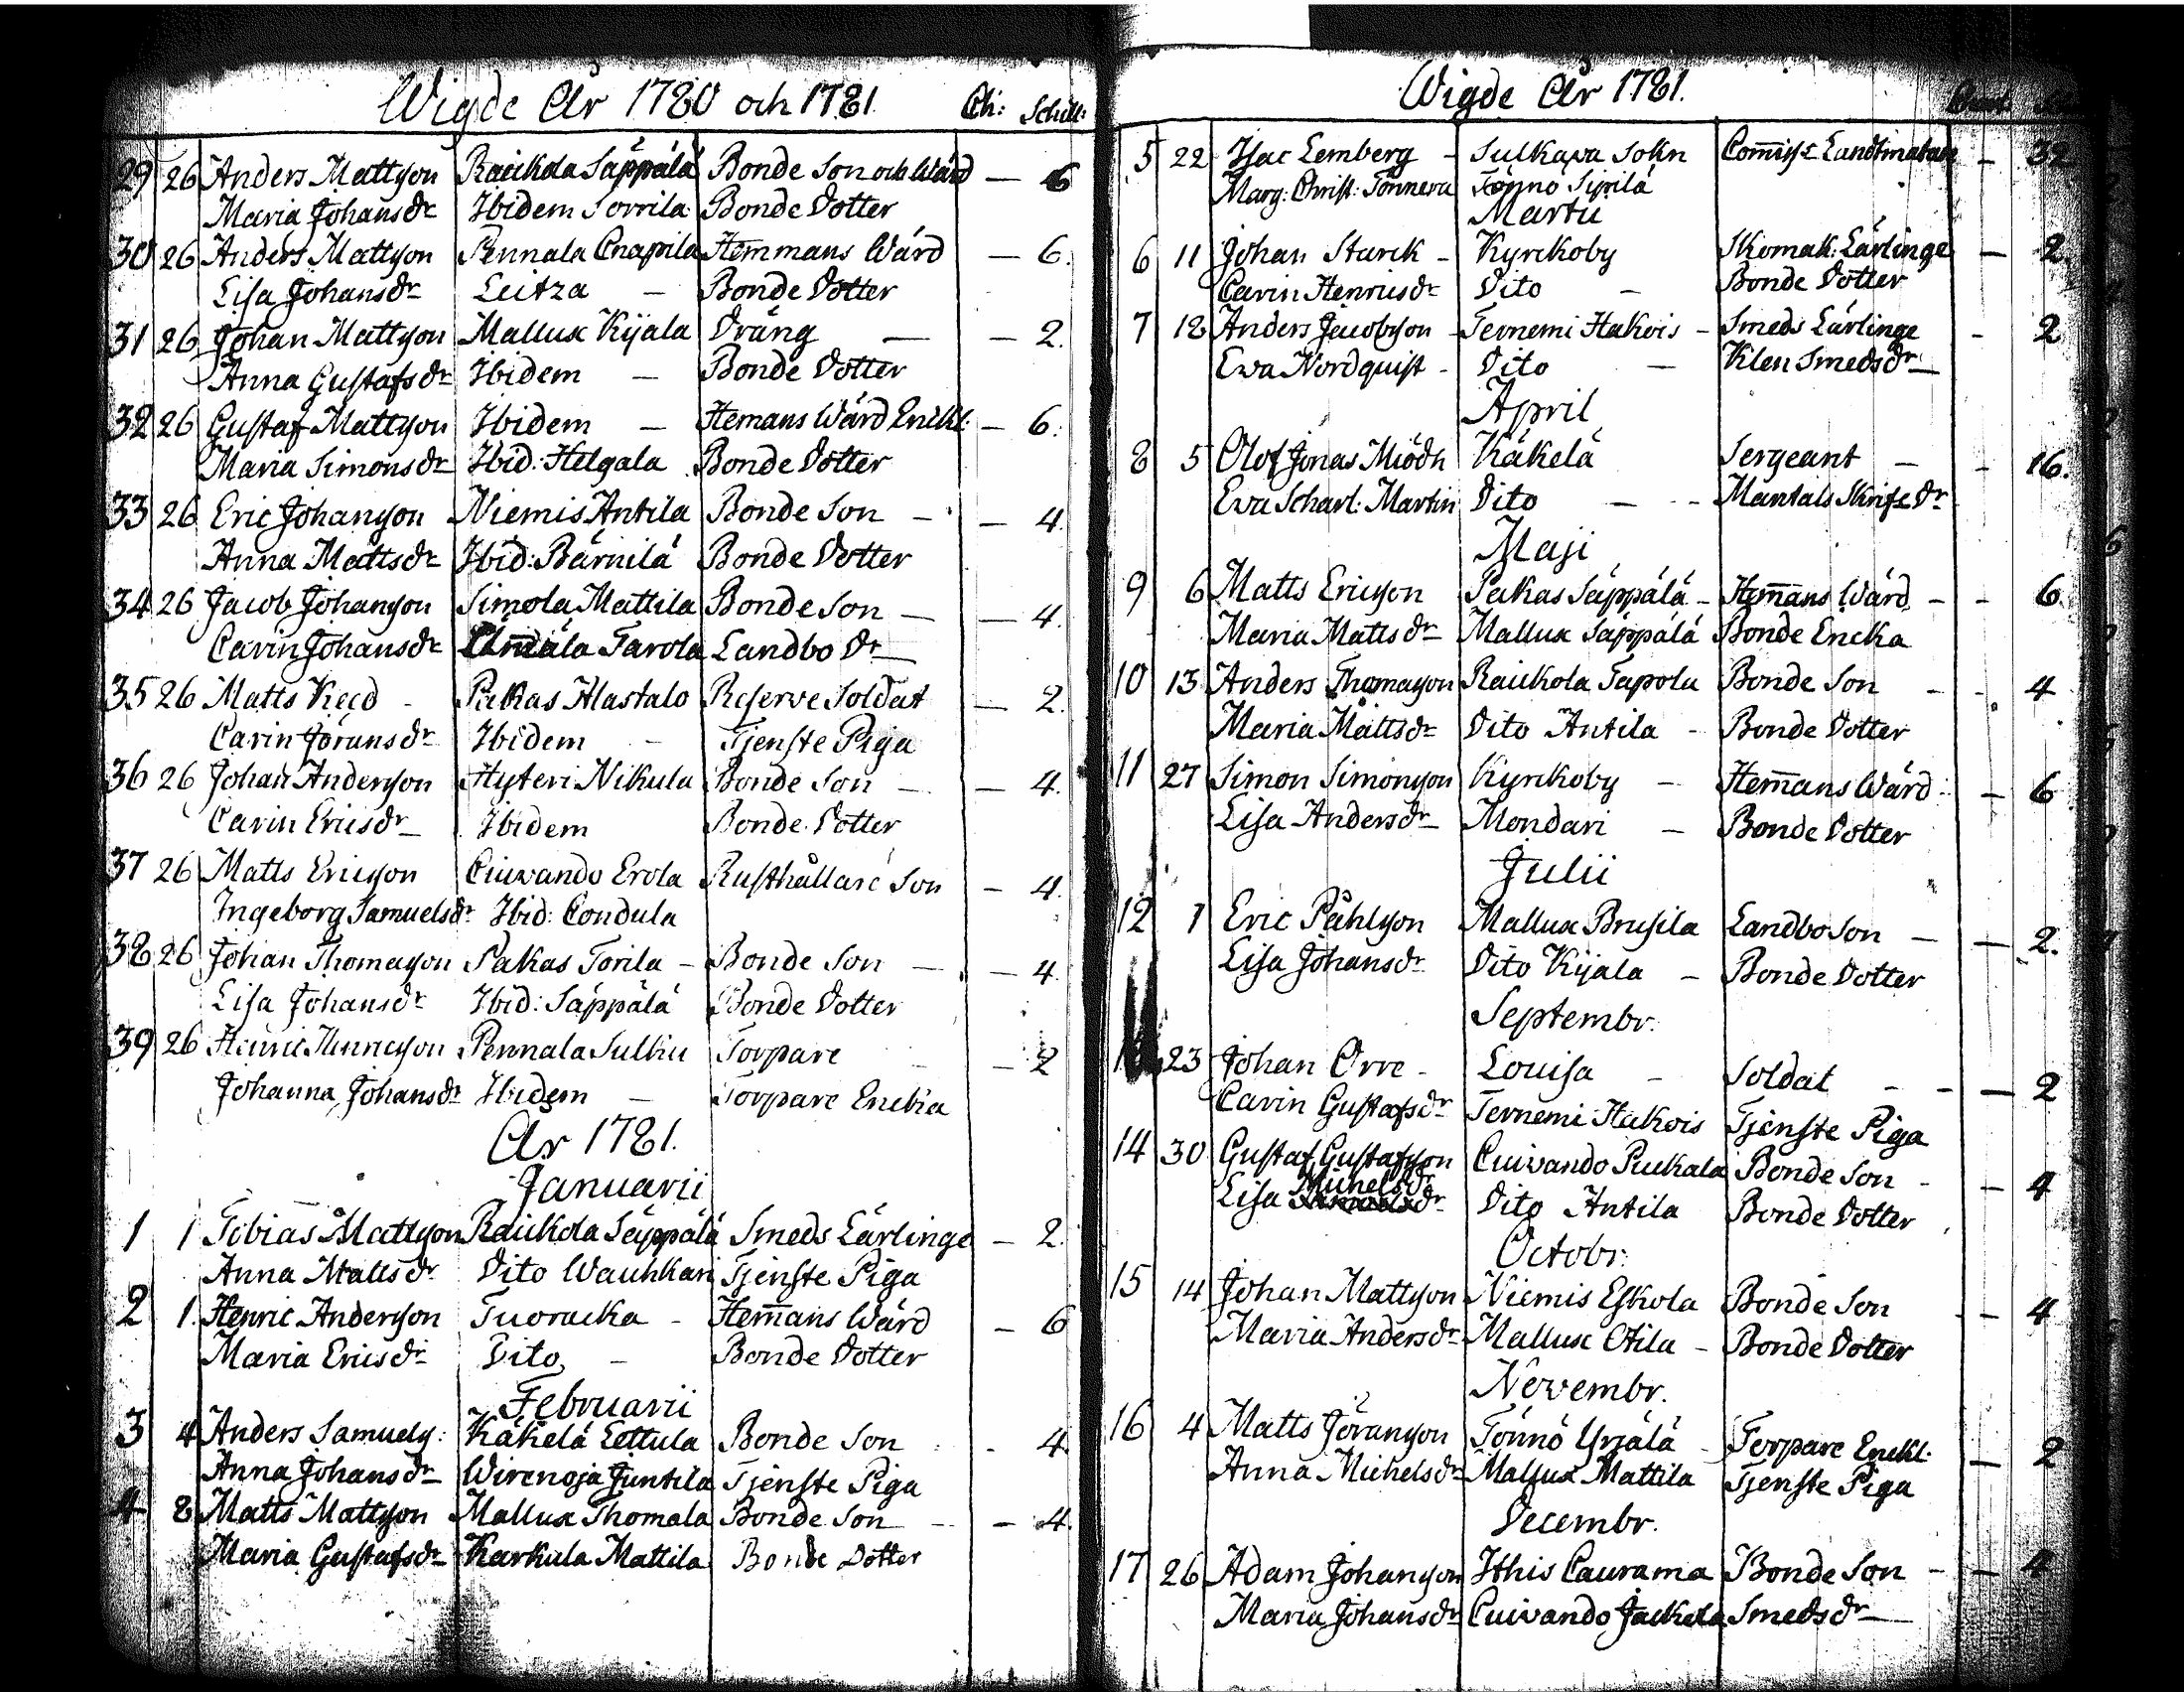 Wigde År 1780 och 1781. Ch: Schill:
29 26 Anders Mattsson Raukola Säppälä Bonde Son och Wärd — 6
Maria Johansdr Ibidem Sorrila Bonde Dotter
30 26 Anders Mattsson Pennala Knapila Hemmans Wärd — 6.
Lisa Johansdr Leitza — Bonde Dotter
31 26 Johan Mattsson Mallusk Kijala Dräng — — 2.
Anna Gustafsdr Ibidem — Bonde Dotter
32 26 Gustaf Mattsson Ibidem — Hemans Wärd Enckl: — 6:
Maria Simonsdr Ibid: Helgala Bonde Dotter
33 26 Eric Johansson Niemis Antila Bonde Son — — 4.
Anna Mattsdr Ibid: Bärnilä Bonde Dotter
34 26 Jacob Johansson Simola Mattila Bonde Son — — 4.
Carin Johansdr Tarola Landbo Dr
35 26 Matts Reed - Pakas Alastalo Reserve Soldat — 2.
Carin Jöransdr Ibidem — Tjenste Piga
36 26 Johan Andersson Hyteri Nikula Bonde Son — — 4.
Carin Ericsdr Ibidem Bonde Dotter
37 26 Matts Ericsson Cuivando Erola Rusthållare Son — 4.
Ingeborg Samuelsdr Ibid: Condula
38 26 Johan Thomasson Pakas Torila — Bonde Son — — 4.
Lisa Johansdr Ibid: Säppälä Bonde Dotter
39 26 Henric Henricsson Pennala Sulku Torpare — 2
Johanna Johansdr Ibidem — Torpare Enckia
År 1781.
Januarii
1 1 Tobias Mattsson Raukola Säppälä Smeds Lärlinge — 2.
Anna Mattsdr Dito Wauhkari Tjenste Piga
2 1. Henric Andersson Tuoracka — Hemans Wärd — 6
Maria Ericsdr Dito — Bonde Dotter
Februarii
3 4 Anders Samuels: Käkelä Lettula Bonde Son - 4.
Anna Johansdr Wirenoja Juntila Tjenste Piga
4 8 Matts Mattsson Mallusk Thomala Bonde Son — 4.
Maria Gustafsdr Karkula Mattila Bonde Dotter
Wigde År 1781.
5 22 Isac Lemberg — Sulkava Sokn Comiss: Landtmätare — 32
Marg: Christ: Tönnera Tönno Sipilä
Martii
6 11 Johan Starck — Kyrckoby Skomak: Lärlinge — 2.
Carin Henricsdr Dito — Bonde Dotter
7 18 Anders Jacobsson — Ternemi Hakois — Smeds Lärlinge - 2
Ewa Nordquist — Dito — Klen Smedsdr
April
8 5 Olof Jonas Miödh Käkelä Sergeant — - 16.
Eva Scharl: Martin Dito — Mantals Skrif: Dr
Maji
9 6 Matts Ericsson Pakas Säppälä — Hemans Wärd — 6.
Maria Mattsdr Mallusk Säppälä Bonde Encka
10 13 Anders Thomasson Raukola Tapola Bonde Son — 4
Maria Mattsdr Dito Antila — Bonde Dotter
11 27 Simon Simonsson Kyrckoby — Hemans Wärd — 6
Lisa Andersdr Mondari — Bonde Dotter
Julii
12 1 Eric Påhlsson Mallusk Brusila Landbo Son — — 2.
Lisa Johansdr Dito Kijala — Bonde Dotter
Septembr.
23 Johan Orre — Louisa — Soldat — — 2
Carin Gustafsdr Ternemi Hakois Tjenste Piga
14 30 Gustaf Gustafsson Cuivando Puckala Bonde Son — 4
Lisa Michelsdr Dito Antila Bonde Dotter
Octobr:
15 14 Johan Mattsson Niemis Eskola Bonde Son — 4
Maria Andersdr Mallusk Otila — Bonde Dotter
Novembr.
16 4 Matts Jöransson Tönnö Yrjälä — Torpare Enckl: — 2
Anna Michelsdr Mallusk Mattila Tjenste Piga
Decembr.
17 26 Adam Johansson Ithis Caurama Bonde Son — — 4
Maria Johansdr Cuivando Jackola Smedsdr